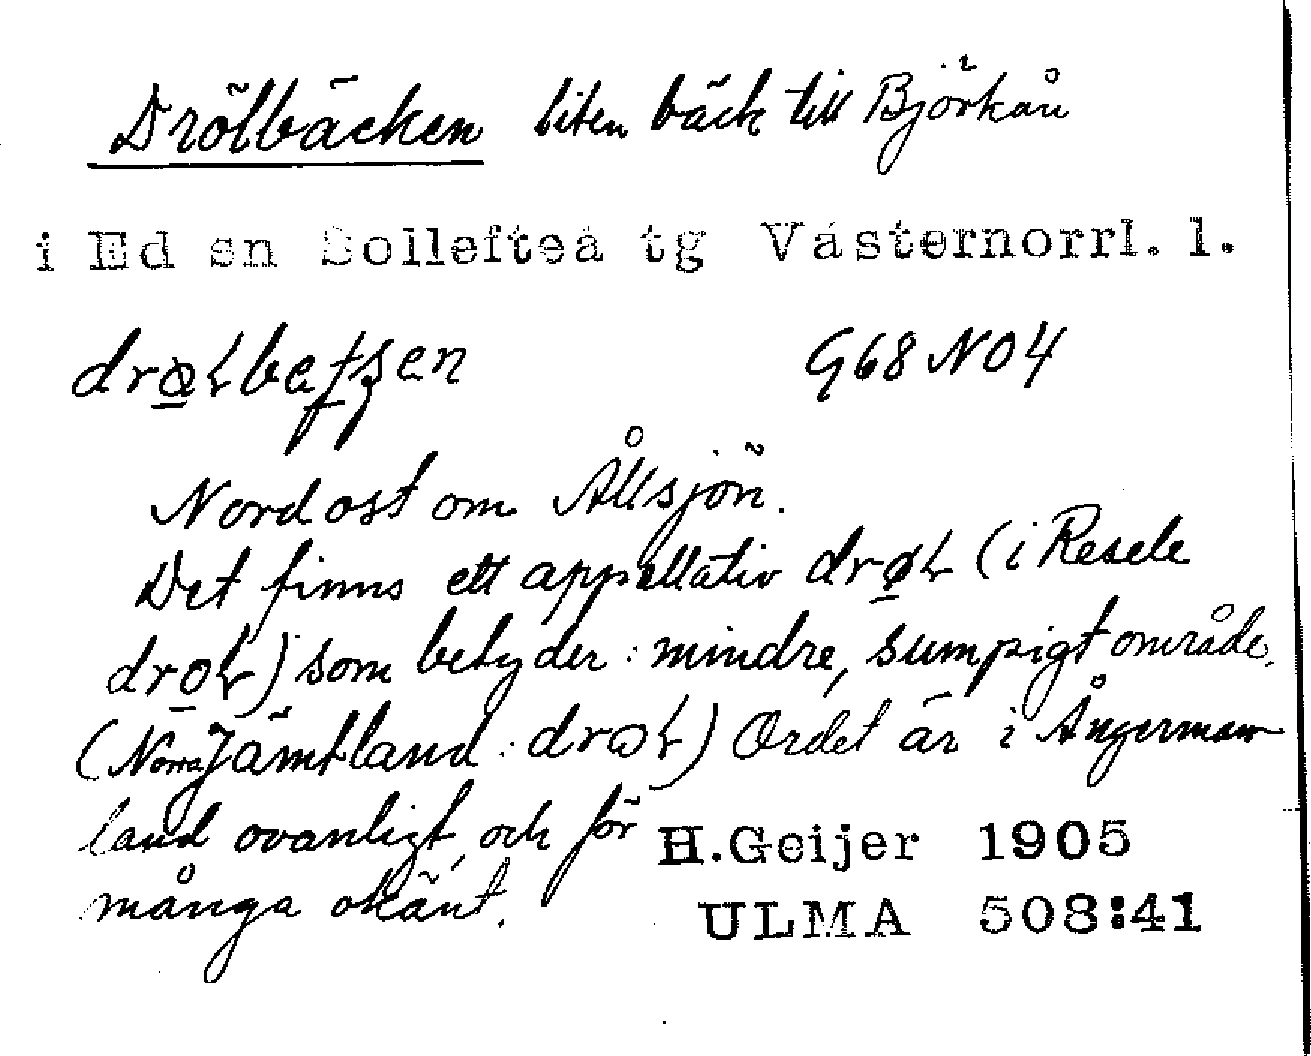 Drölbäcken liten bäck till Björkån
i Ed sn Sollefteå tg Västernorrl. l.
G68 NO4
Nordost om Ållsjön.
Det finns ett appellativ drøɫ (i Resele
droɫ) som betyder: mindre, sumpigt område.
(Norra Jämtland: droɫ) Ordet är i Ångerman-
land ovanligt, och för
många okänt.
H.Geijer 1905
ULMA 508:41